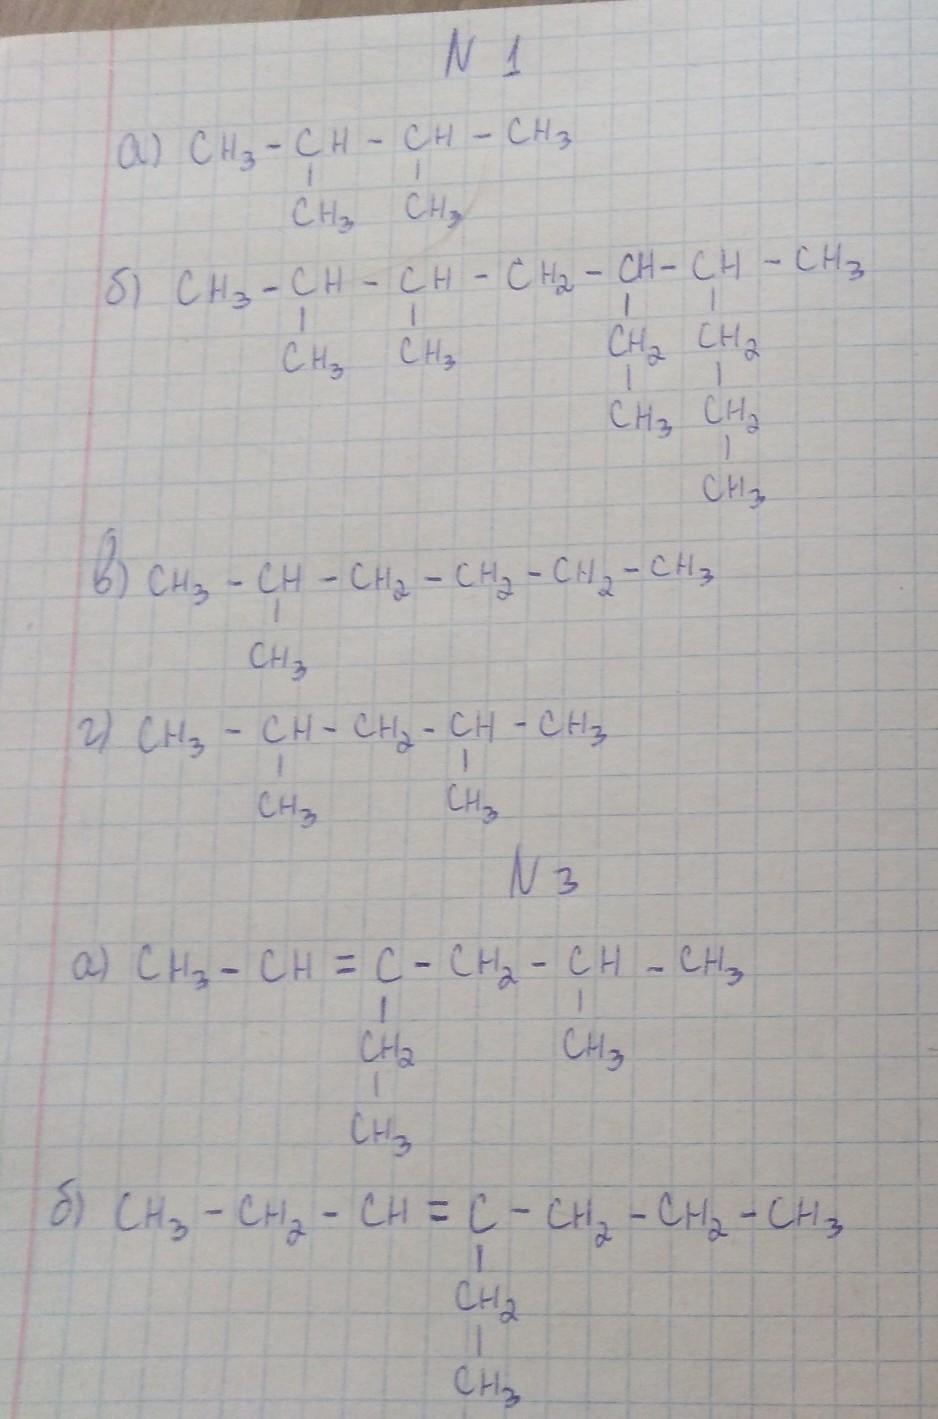 N 1
а) CH3 - CH - CH - CH3
| |
CH3 CH3
б) CH3 - CH - CH - CH2 - CH - CH - CH3
| | | |
CH3 CH3 CH2 CH2
| |
CH3 CH2
|
CH3
в) CH3 - CH - CH2 - CH2 - CH2 - CH3
|
CH3
г) CH3 - CH - CH2 - CH - CH3
| |
CH3 CH3
N 3
а) CH3 - CH = C - CH2 - CH - CH3
| |
CH2 CH3
|
CH3
б) CH3 - CH2 - CH = C - CH2 - CH2 - CH3
|
CH2
|
CH3